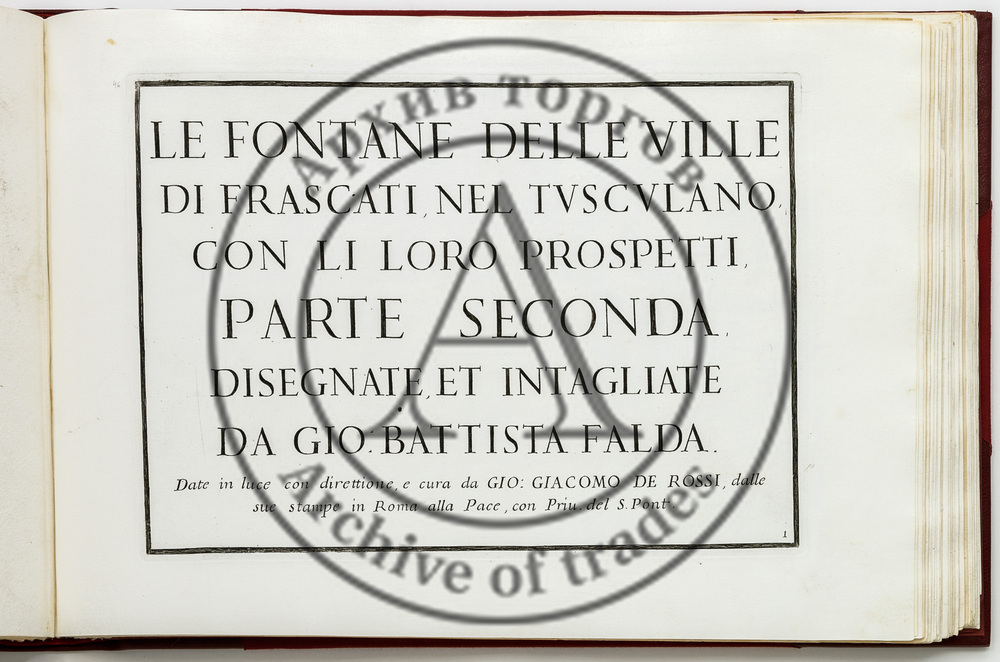 LE FONTANE DELLE VILLE
DI FRASCATI, NEL TVSCVLANO,
CON LI LORO PROSPETTI,
PARTE SECONDA.
DISEGNATE, ET INTAGLIATE
DA GIO: BATTISTA FALDA.
Date in luce con direttione, e cura da GIO: GIACOMO DE ROSSI, dalle
sue stampe in Roma alla Pace, con Priu. del S. Pont.
1
46
Архив торгов
A
Archive of trades